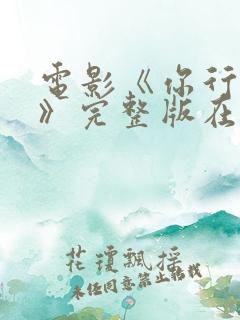 電影《你行
》完整版在
花瓊飄摇
未经同意禁止转载